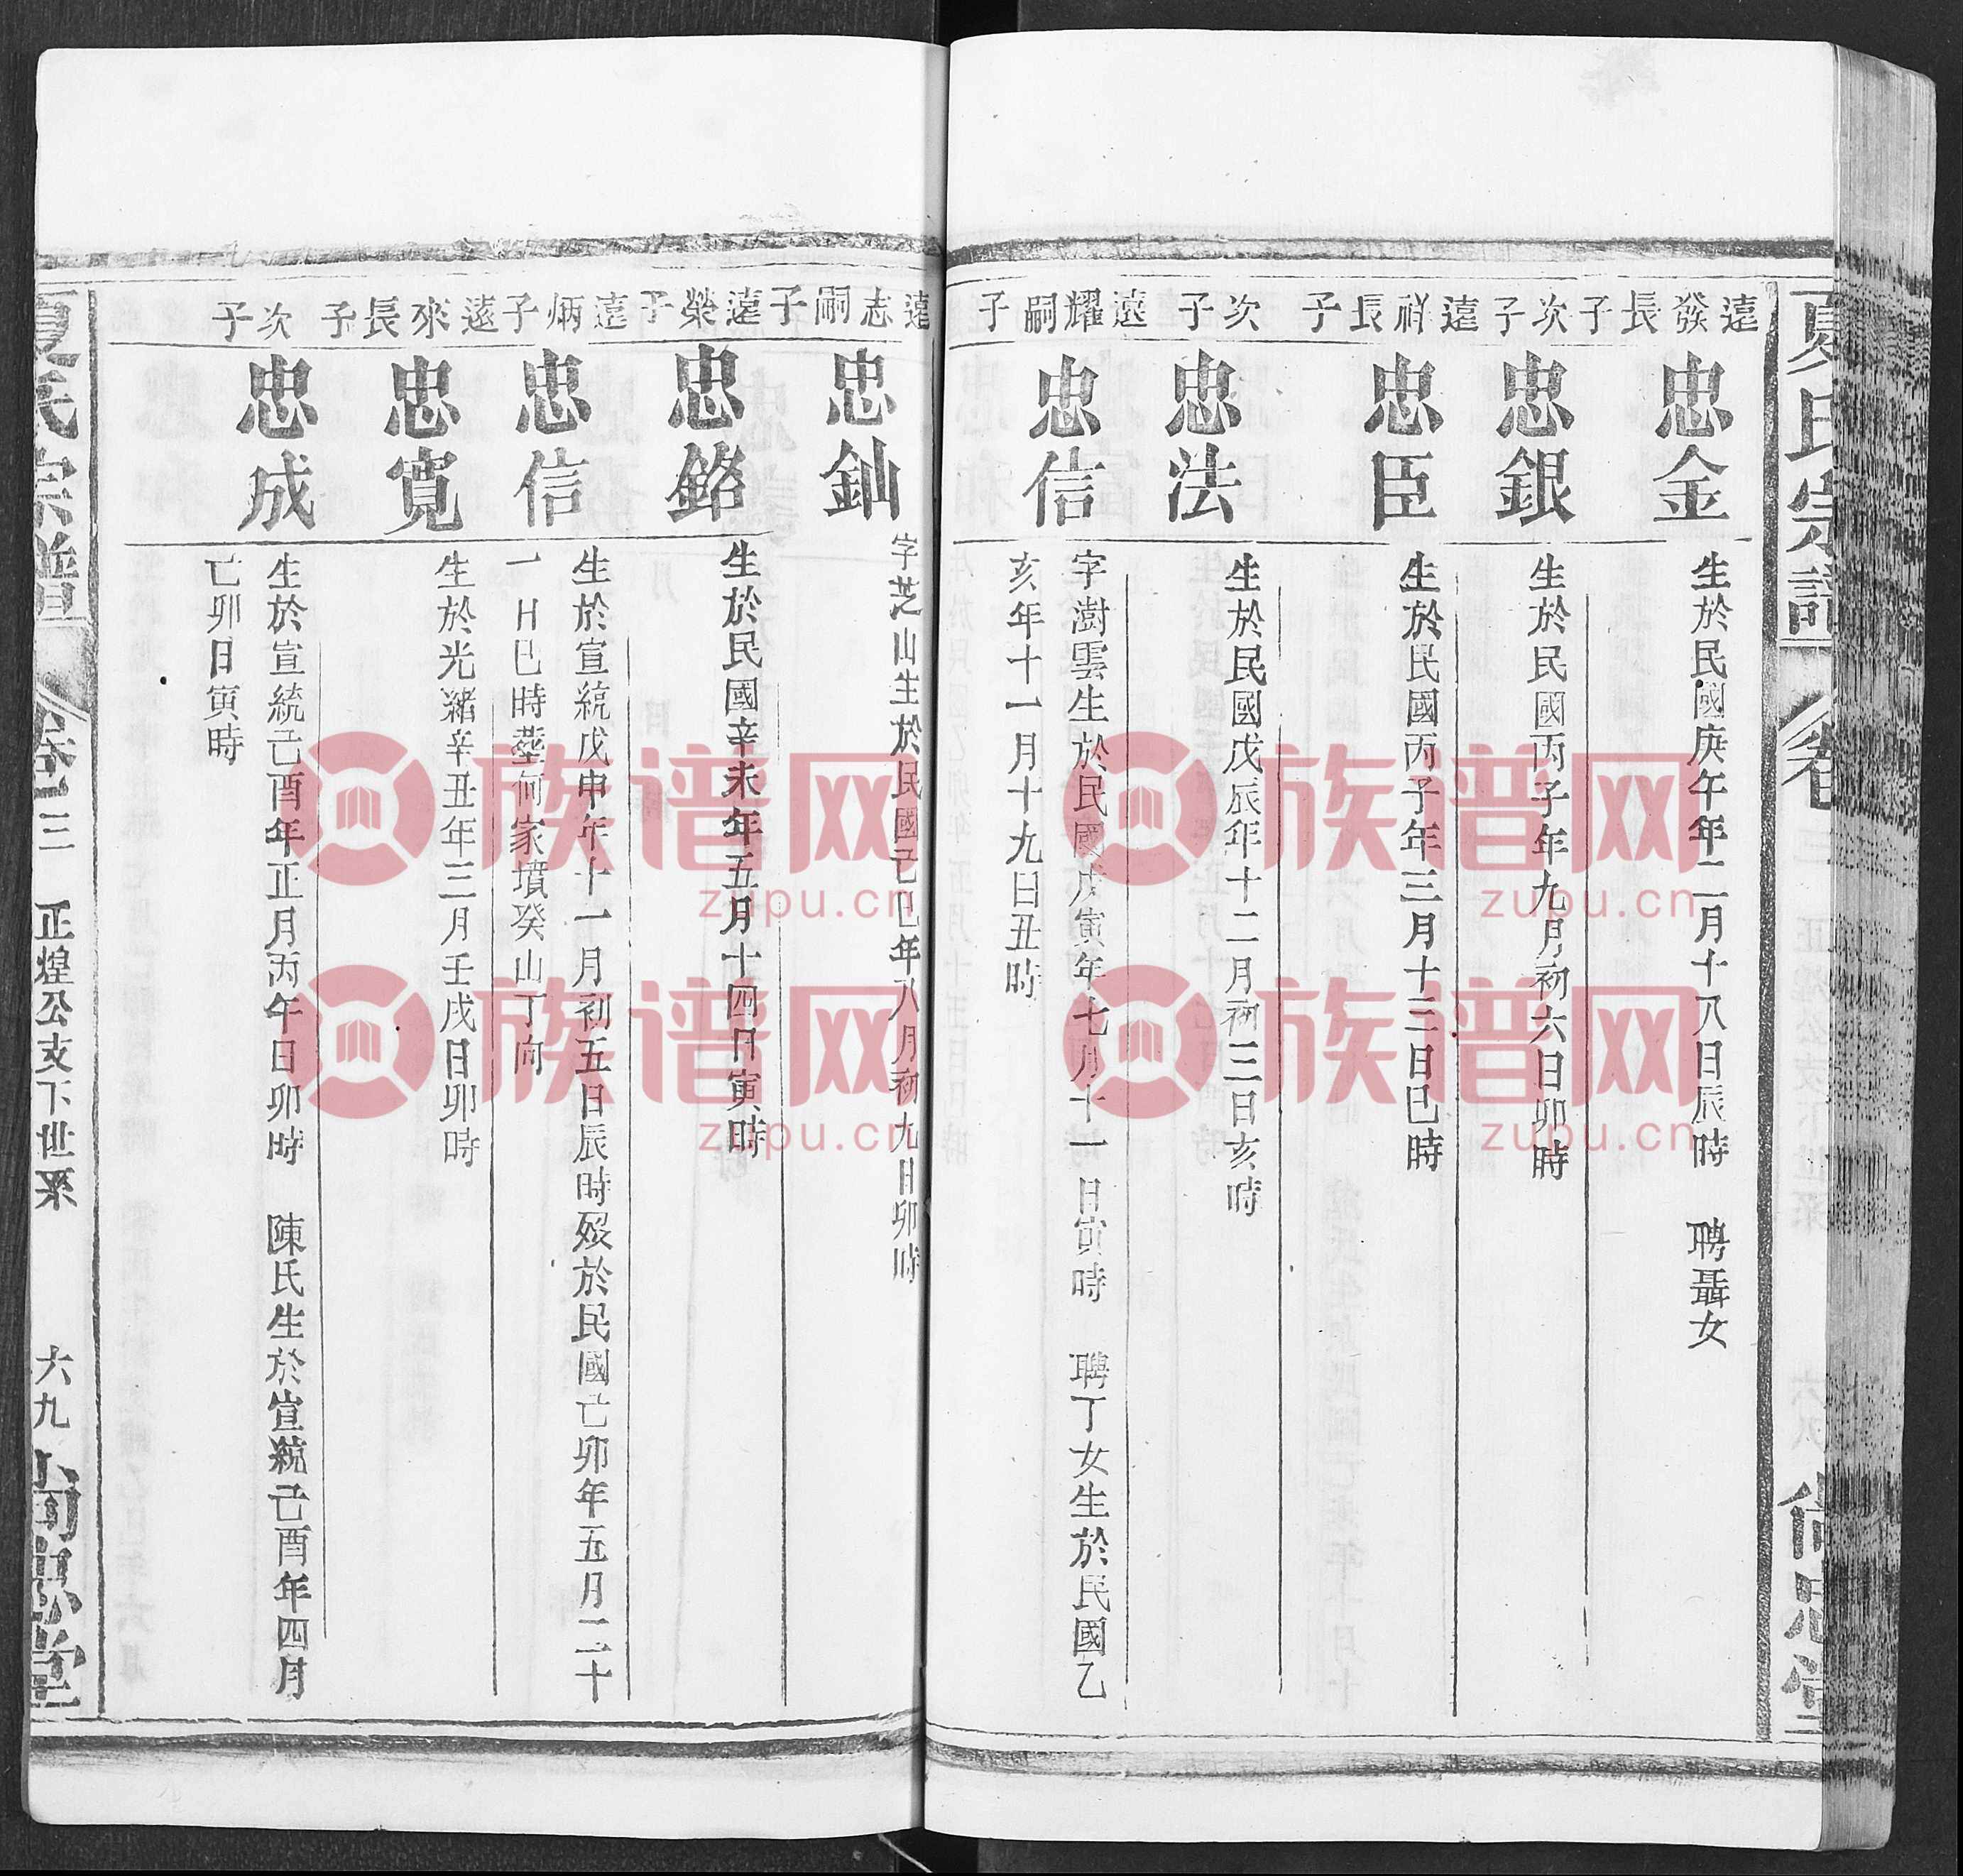 夏氏宗譜
卷
尙忠堂
遠發長子
忠金
生於民國庚午年二月十八日辰時 聘聶女
次子
忠銀
生於民國丙子年九月初六日卯時
遠祥長子
忠臣
生於民國丙子年三月十二日巳時
次子
忠法
生於民國戊辰年十二月初三日亥時
遠耀嗣子
忠信
字澍雲生於民國戊寅年七月十一日寅時 聘丁女生於民國乙
亥年十一月十九日丑時
遠志嗣子
忠釉
字芝山生於民國己巳年八月初九日卯時
遠榮子
忠鉻
生於民國辛未年五月十四日寅時
遠炳子
忠信
生於宣統戊申年十一月初五日辰時歿於民國己卯年五月二十
一日巳時塟何家墳癸山丁向
遠來長子
忠寬
生於光緒辛丑年三月壬戌日卯時
次子
忠成
生於宣統己酉年正月丙午日卯時 陳氏生於宣統己酉年四月
己卯日寅時
夏氏宗譜
卷三
正煌公支下世系
六九
尙忠堂
族谱网
zupu.cn
族谱网
zupu.cn
族谱网
zupu.cn
族谱网
zupu.cn